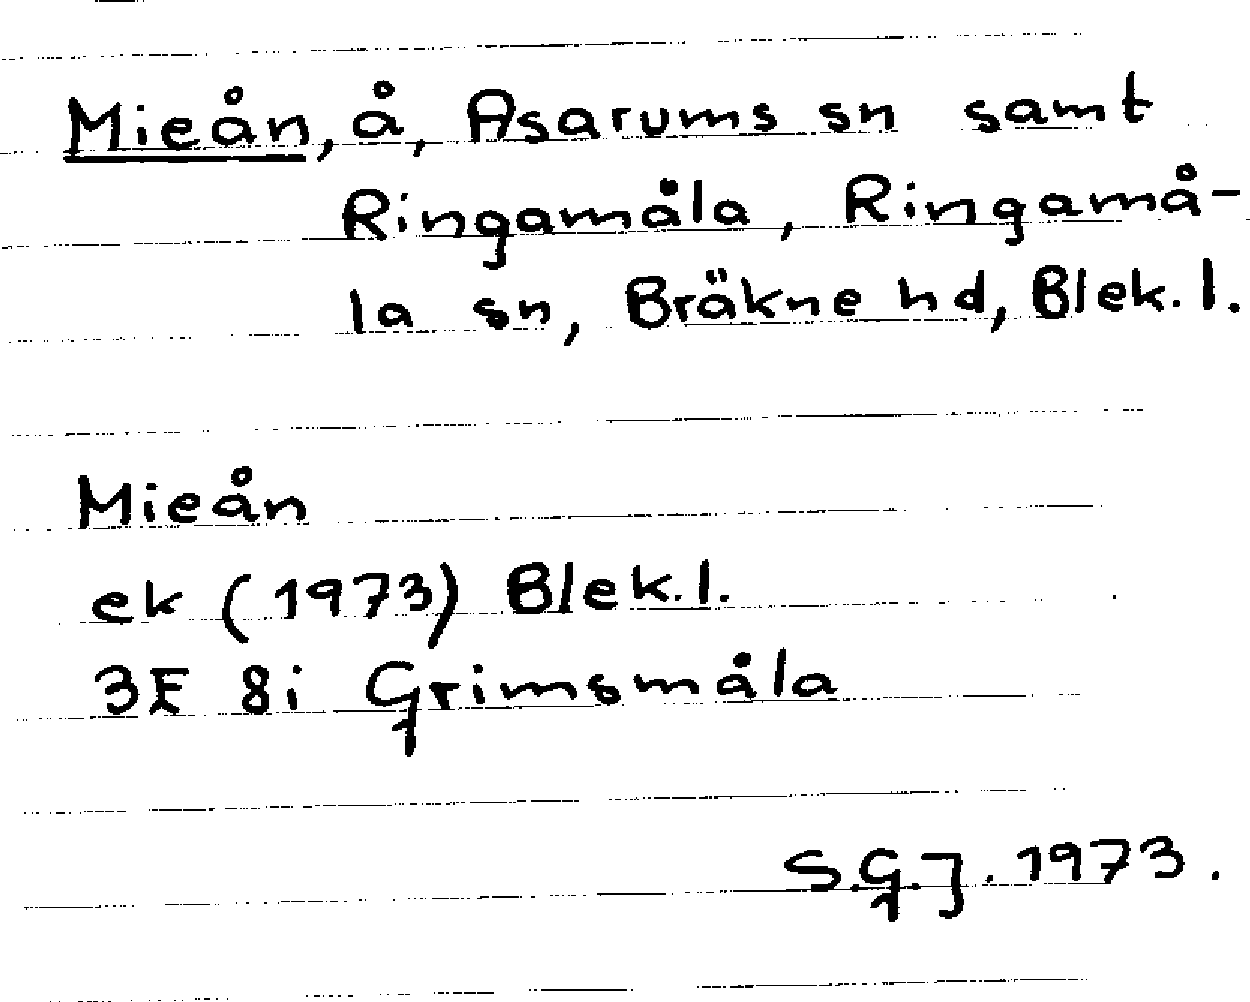 Mieån, å, Asarums sn samt
Ringamåla, Ringamå-
la sn, Bräkne hd, Blek. l.
Mieån
ek (1973) Blek. l.
3E 8i Grimsmåla
S.G.J. 1973.